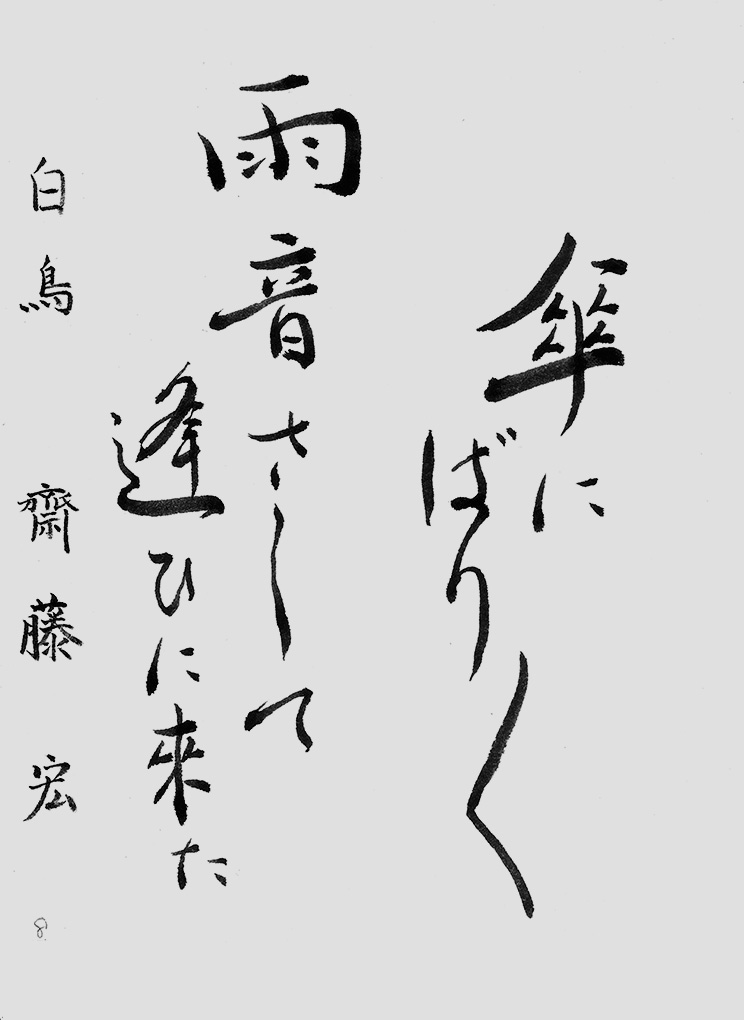 傘に
ばり〳〵
雨音さして
逢ひに來た
白鳥 齋藤宏
8